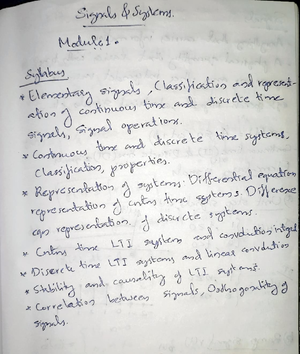 Signals & Systems.
Module 1.
Syllabus
* Elementary signals, Classification and represent-
ation of continuous time and discrete time
signals, signal operations.
* Continuous time and discrete time systems,
Classification, properties.
* Representation of systems: Differential equation
representation of cntns time systems. Difference
eqn representation of discrete systems.
* Cntns time LTI systems and convolution integral
* Discrete time LTI systems and linear convolution
* Stability and causality of LTI systems.
* Correlation between signals, Orthogonality of
signals.